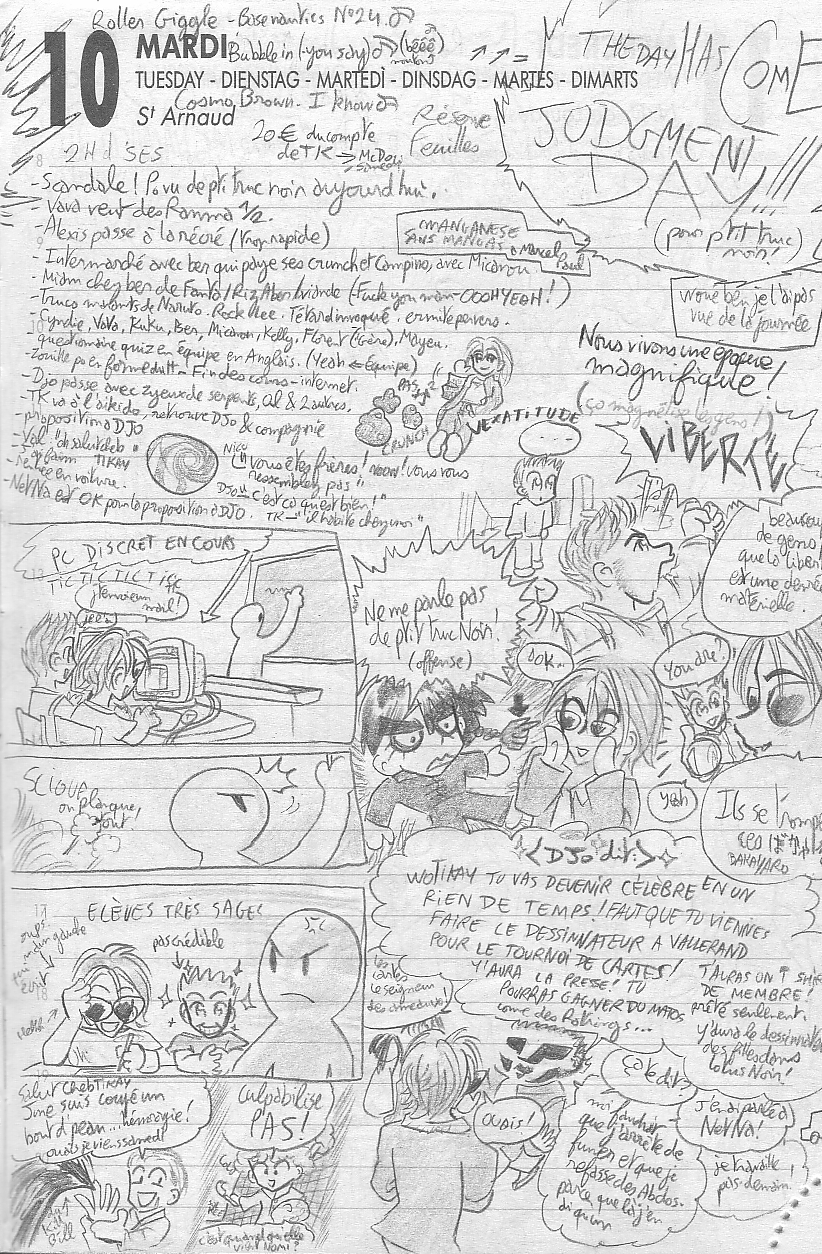 Roller Giggle - Basenautics N°24
10
MARDI
Bubble in (-you say) (bééé)
TUESDAY - DIENSTAG - MARTEDÌ - DINSDAG - MARTES - DIMARTS
Cosmo Brown - I know
St Arnaud
Réserve
Feuilles
20€ du compte
de TK → McDo
THE DAY HAS COME
JUDGMENT
DAY!!!
(pour ptit truc
noir!
2H d'SES
- Scandale! Po vu de ptit truc noir aujourd'hui.
- Vava veut des Ranma 1/2.
- Alexis passe à la récré (trop rapide)
MANGANESE
SANS MANGAS
Marcel
Paul
- Intermarché avec ber qui paye ses crunch et Campino, avec Micanou
- Miam chez ber de Fanta/Riz, Aben/viande (Fuck you man - OOOH YEAH!)
- Trucs marrants de Naruto. Rock Lee. Têtard invoqué. ermite pervers.
- Cyndie, Vava, Kuku, Ben, Micanou, Kelly, Florent (Gène), Mayeu.
questionaire quiz en équipe en Anglais. (Yeah ← Équipe)
Fin des cours - internet.
- Djo passe avec zyeux de serpents, Al & 2 autres,
- TK va à l'aikido, retrouve DJo & compagnie
- proposition à DJO
- Val "oh salut caleb"
TIKAY
- rentre en voiture.
- NeNva est OK pour la proposition à DJO.
Nico
"Vous êtes frères! noon! vous vous
ressemblez pas"
DJO "c'est ça qu'est bien!"
TK → "il habite chez moi"
CRUNCH
VEXATITUDE
woué ben je l'ai pas
vue de la journée
Nous vivons une époque
magnifique!
(ça magnétise les gens!)
LIBERTÉ
beaucoup
de gens
que la liberté
est une denrée
matérielle.
PC DISCRET EN COURS
TIC TIC TIC TIC
j'envoie un
mail!
Ne me parle pas
de ptit truc Noir!
(offense)
OOK...
You dre!
yeah
Ils se trompent
BAKAYARO
on planque
tout!
ELÈVES TRÈS SAGES
oups
main gauche
qui
écrit
pas crédible
<DJO dit:>
WOTIKAY TU VAS DEVENIR CÉLÈBRE EN UN
RIEN DE TEMPS! FAUT QUE TU VIENNES
FAIRE LE DESSINNATEUR A VALLERAND
POUR LE TOURNOI DE CARTES!
Y'AURA LA PRESSE! TU
POURRAS GAGNER DU MATOS
come des Rotrings...
les
cartes
le seigneur
des anneaux!
T'AURAS UN T SHIRT
DE MEMBRE!
prêté seulement.
Y'aura le dessinnateur
des filles dans
lotus Noir!
Salut CalebTIKAY
J'me suis coupé un
bout d'peau...hémorragie!
ouais je viens samedi!
Culpabilise
PAS!
Kill
Bill
c'est quand qu'elle
vient Nomi?
Ouais!
Ça le dit?
moi faudrait
que j'arrête de
fumer et que je
refasse des Abdos.
parce que là j'en
ai qu'un
J'en ai parlé à
NeNva!
je travaille
pas demain.